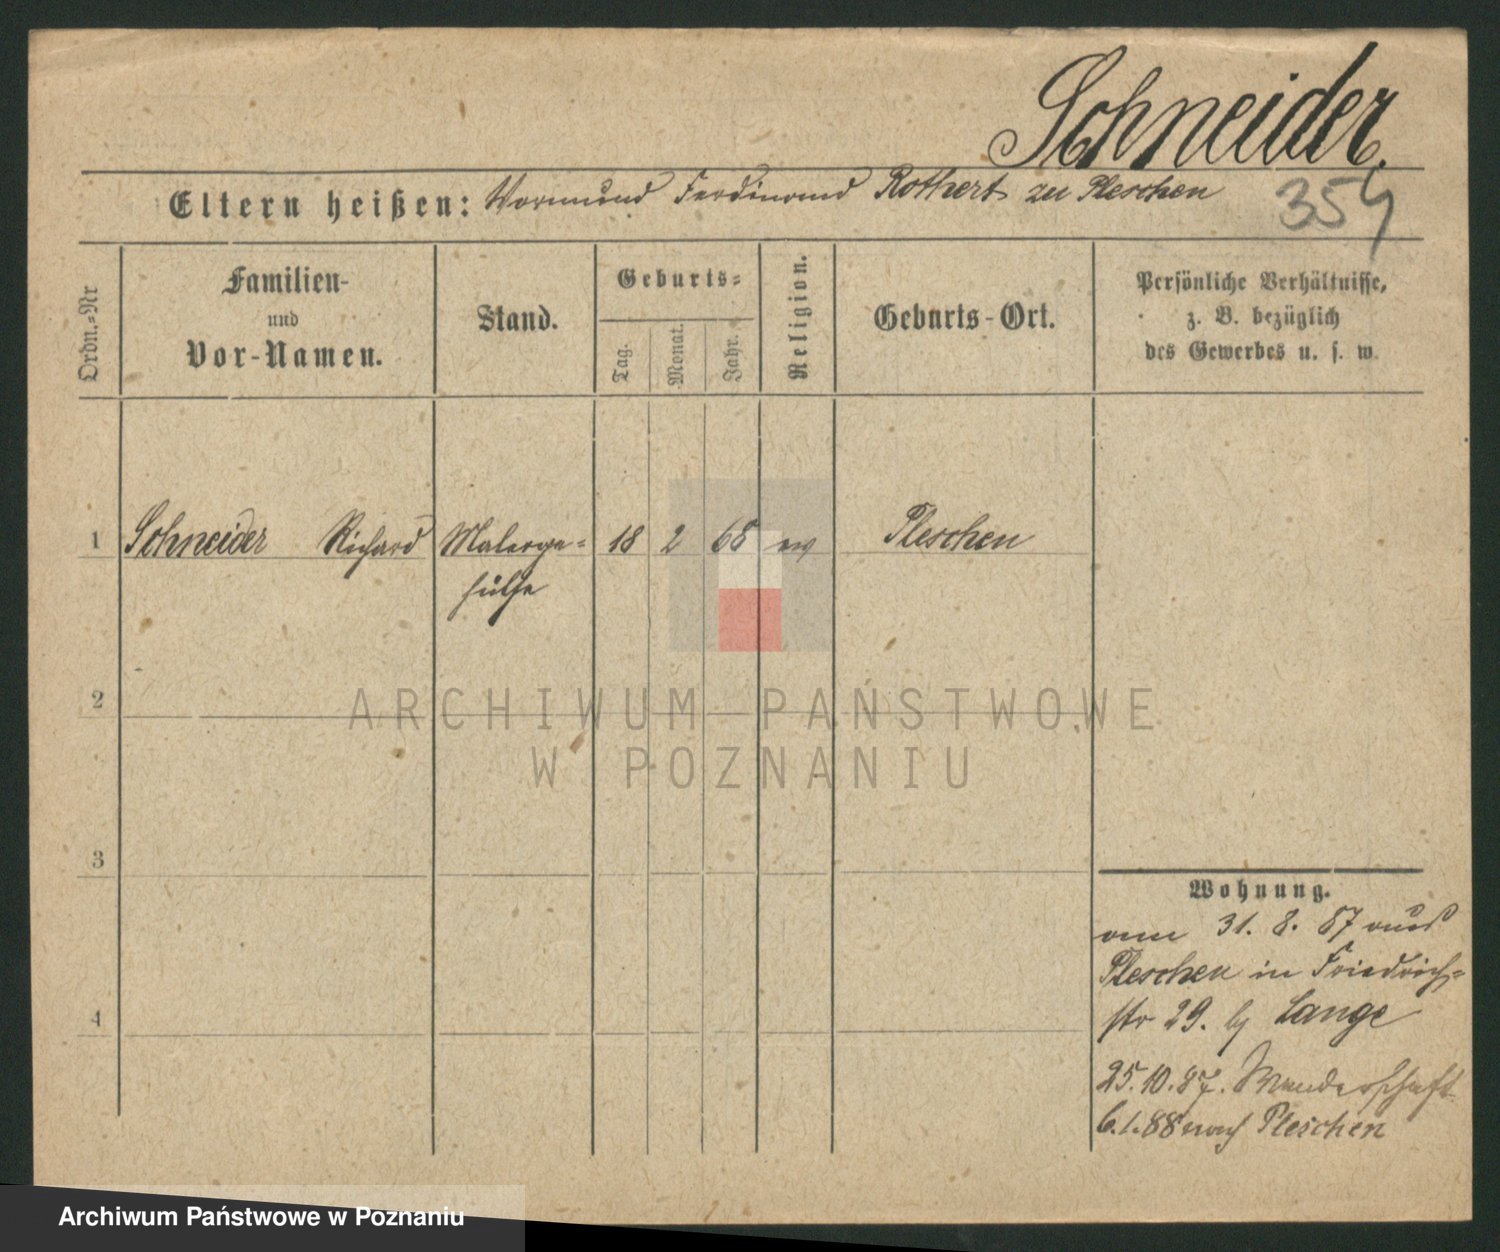 Schneider.
Eltern heißen: Vormund Ferdinand Rothert zu Pleschen
354
Ordn.-Nr
Familien-
und
Vor-Namen.
Stand.
Geburts-
Tag.
Monat.
Jahr.
Religion.
Geburts-Ort.
Persönliche Verhältnisse,
z. B. bezüglich
des Gewerbes u. s. w.
1 Schneider Richard Malerge- 18 2 68 ev Pleschen
hülfe
2
ARCHIWUM PAŃSTWOWE
W POZNANIU
3
4
Wohnung.
31. 8. 87 aus
Pleschen in Friedrich-
str 29. b Lange
25.10.87. Wanderschaft
6.1.88 nach Pleschen
Archiwum Państwowe w Poznaniu